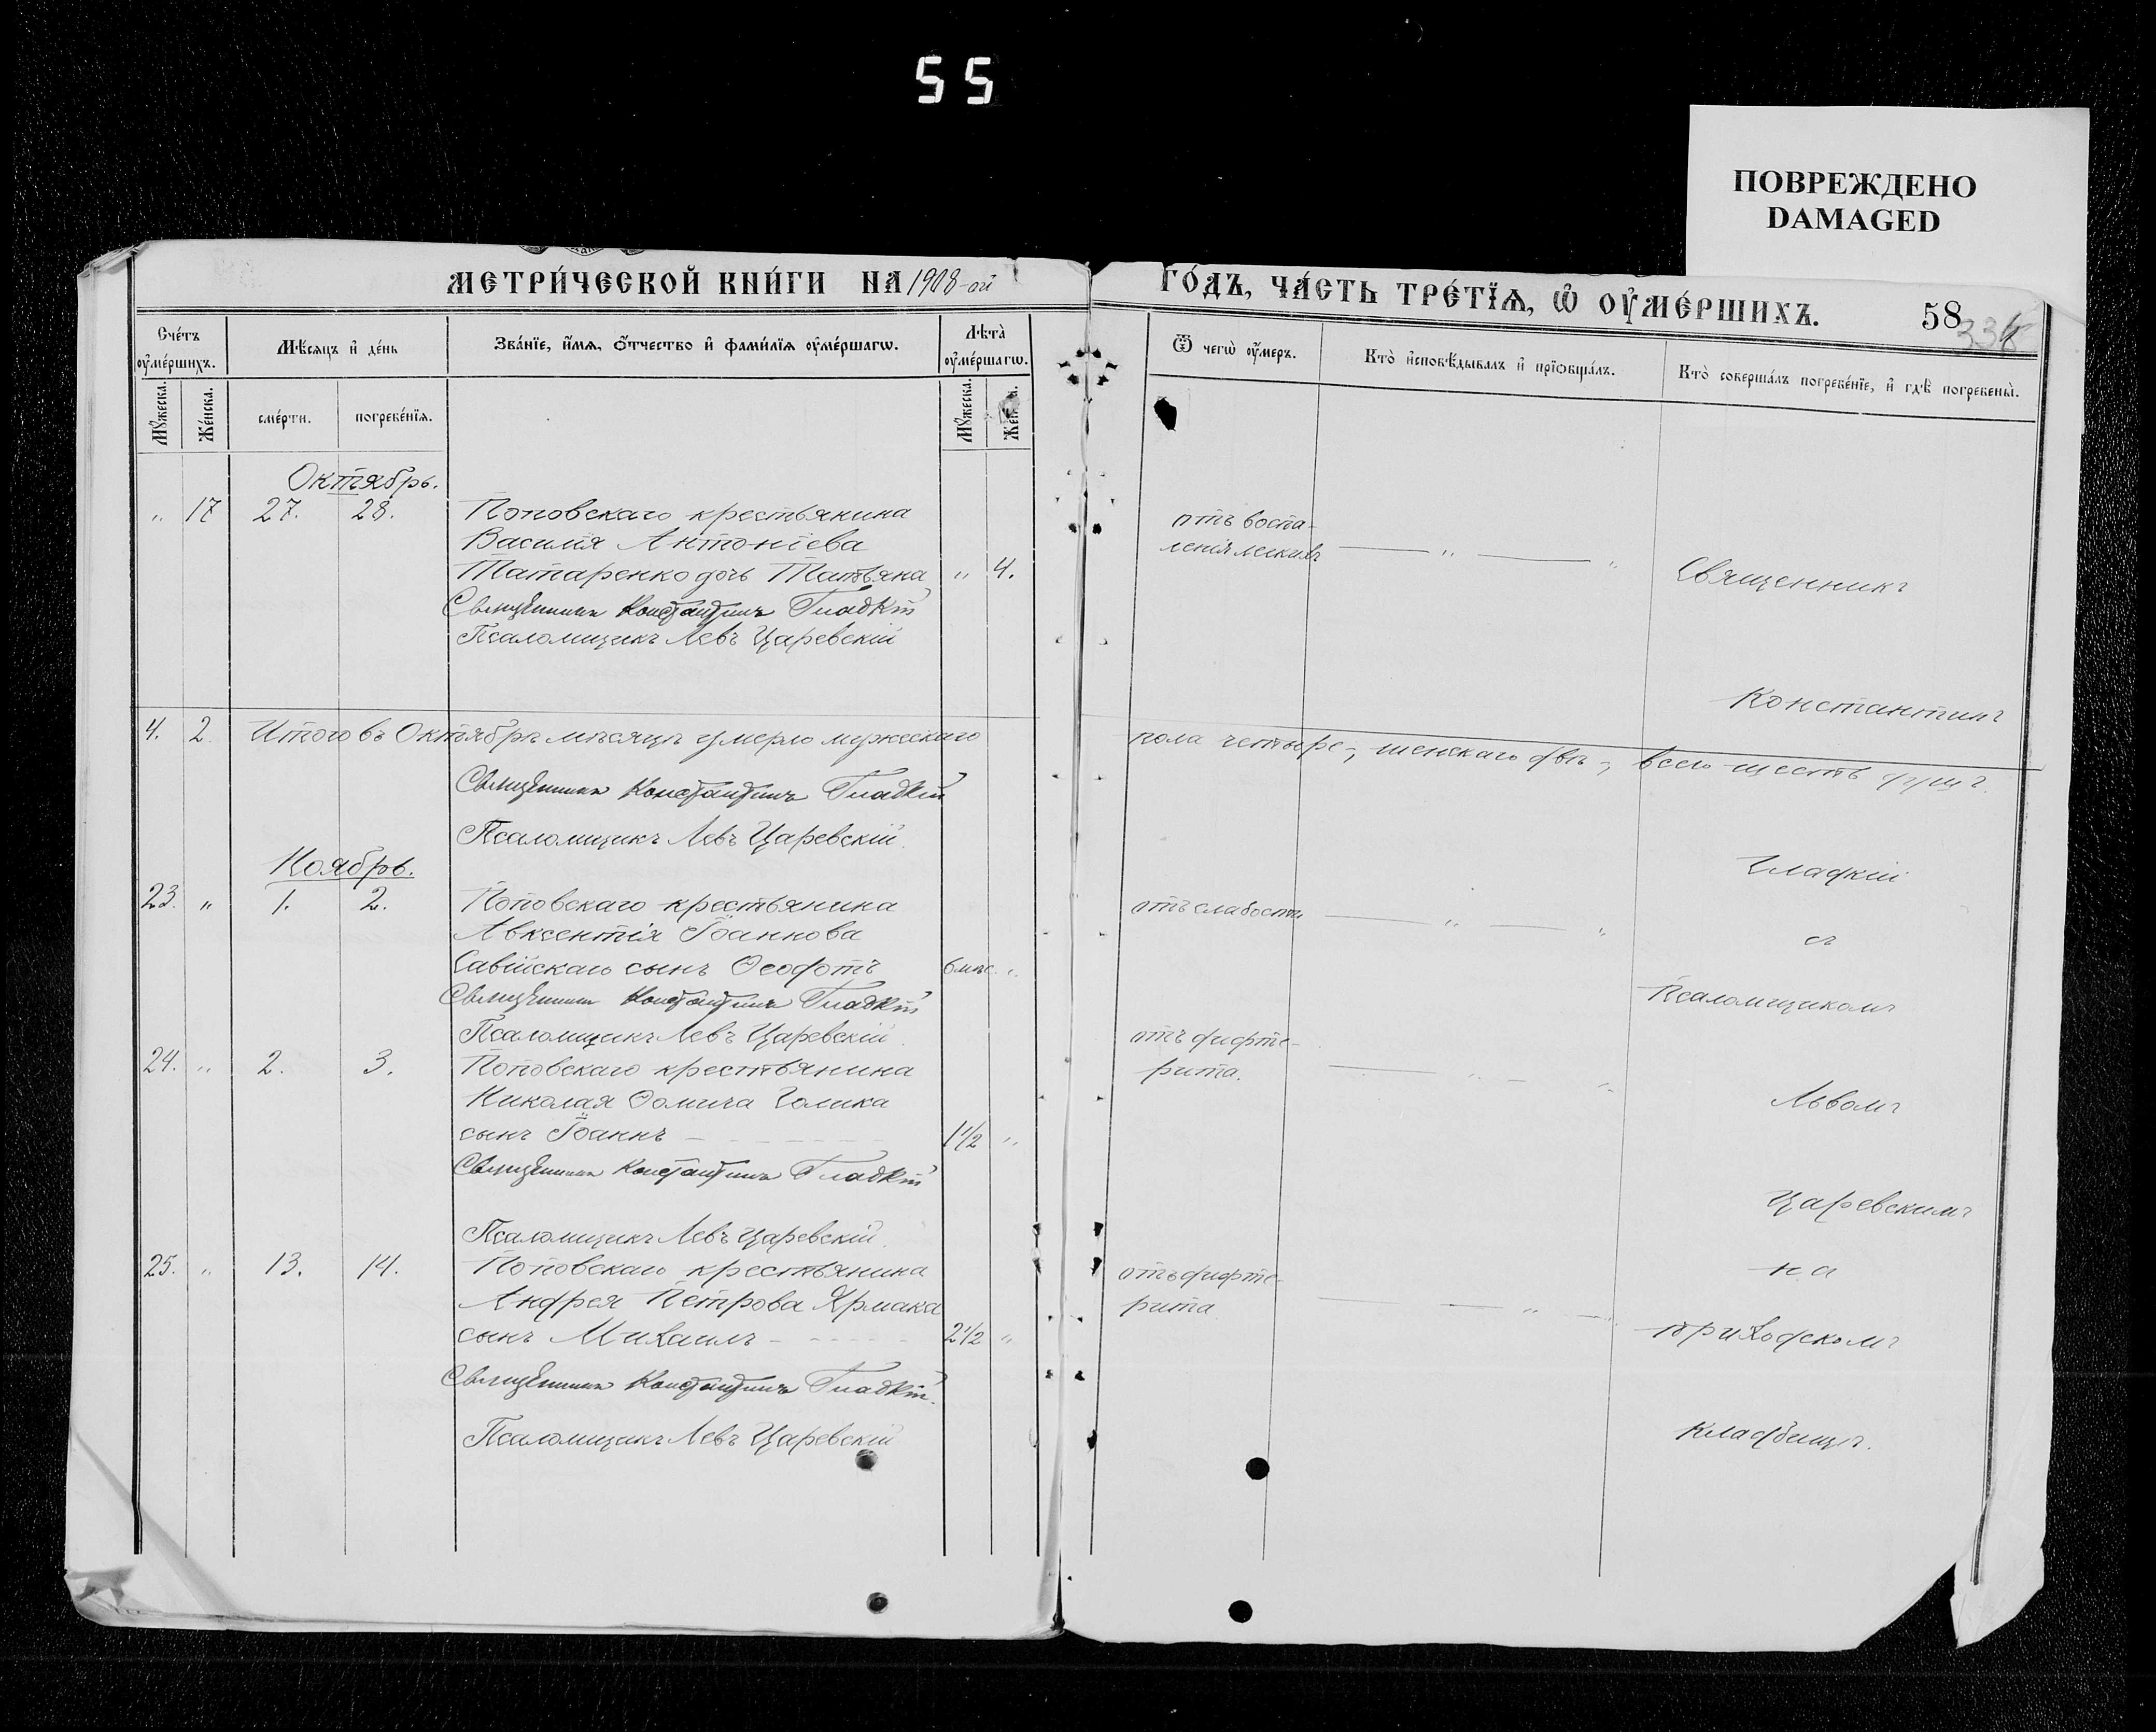 55
ПОВРЕЖДЕНО
DAMAGED
МЕТРИ́ЧЕСКОЙ КНИ́ГИ НА 1908-ой
ГО́ДЪ, ЧА́СТЬ ТРЕ́ТЇѦ, Ѽ ОУ҆МЕ́РШИХЪ.
58
Сче́тъ оу҆ме́ршихъ.
Мѣ́сяцъ и҆ де́нь
Зва́нїе, и҆́мѧ, ѻ҆́тчество и҆ фами́лїѧ оу҆ме́ршагѡ.
Лѣ́та̀ оу҆ме́ршагѡ.
Ѿ чегѡ̀ оу҆́меръ.
Кто̀ и҆сповѣ́дывалъ и҆ прїѡбща́лъ.
Кто̀ соверша́лъ погребе́нїе, и҆ гдѣ̀ погребены̀.
Мꙋ́жеска.
Же́нска.
сме́рти.
погребе́нїѧ.
Мꙋ́жеска.
Же́нска.
Октябрь.
„ 17 27. 28. Поповскаго крестьянина
Василія Антоніева
Татаренко дочь Татьяна „ 4.
Священникъ Константинъ Гладкій
Псаломщикъ Левъ Царевскій
отъ воспа-
ленія легкихъ — „ — „
Священникъ
Константинъ
4. 2. Итого въ Октябрѣ мѣсяцѣ умерло мужескаго
пола четыре-, женскаго двѣ-, всего шесть душъ.
Священникъ Константинъ Гладкій
Псаломщикъ Левъ Царевскій.
Гладкій
Ноябрь.
23. „ 1. 2. Поповскаго крестьянина
Авксентія Іоаннова
Савійскаго сынъ Ѳеофотъ 6 мѣс. „
Священникъ Константинъ Гладкій
Псаломщикъ Левъ Царевскій.
отъ слабости — „ — „
съ
Псаломщикомъ
24. „ 2. 3. Поповскаго крестьянина
Николая Ѳомича Голика
сынъ Іоаннъ — 1 1/2 „
Священникъ Константинъ Гладкій
Псаломщикъ Левъ Царевскій.
отъ дифте-
рита. — „ — „
Львомъ
Царевскимъ
25. „ 13. 14. Поповскаго крестьянина
Андрея Петрова Ярмака
сынъ Михаилъ — 2 1/2 „
Священникъ Константинъ Гладкій.
Псаломщикъ Левъ Царевскій
отъ дифте-
рита — „ — „
на
приходскомъ
кладбищѣ.